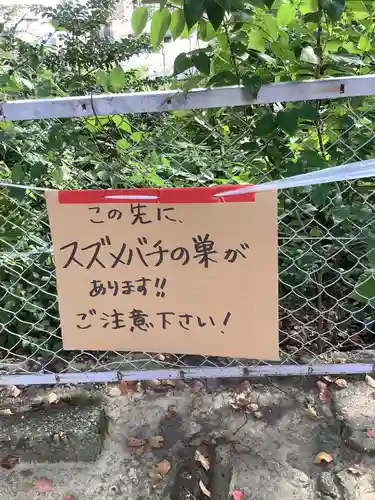 この先に、
スズメバチの巣が
あります!!
ご注意下さい!